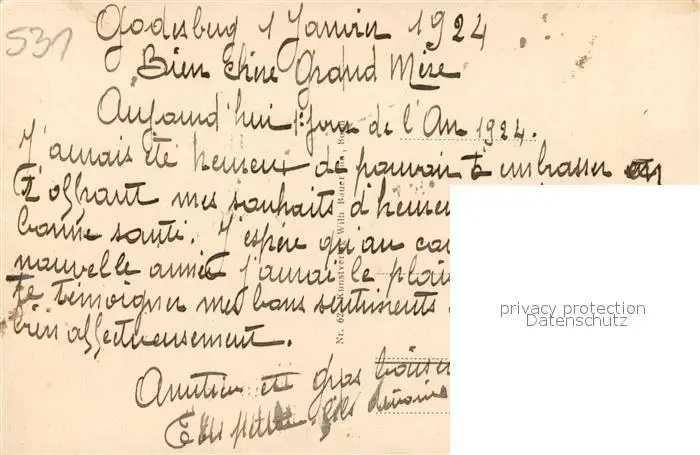 531
Godesbug 1 Janvier 1924
Bien Chère Grand Mère
Aujourd'hui 1r Jour de l'An 1924.
J'aurais été heureux de pouvoir t'embrasser en
t'offrant mes souhaits d'heureu
bonne santé. J'espère qu'au cou
nouvelle année j'aurai le plais
te témoigner mes bons sentiments
bien affectueusement.
et gros baiser
Ton petit fils
Nr. 62 Kunstverl. Wilh. Bauer
privacy protection
Datenschutz